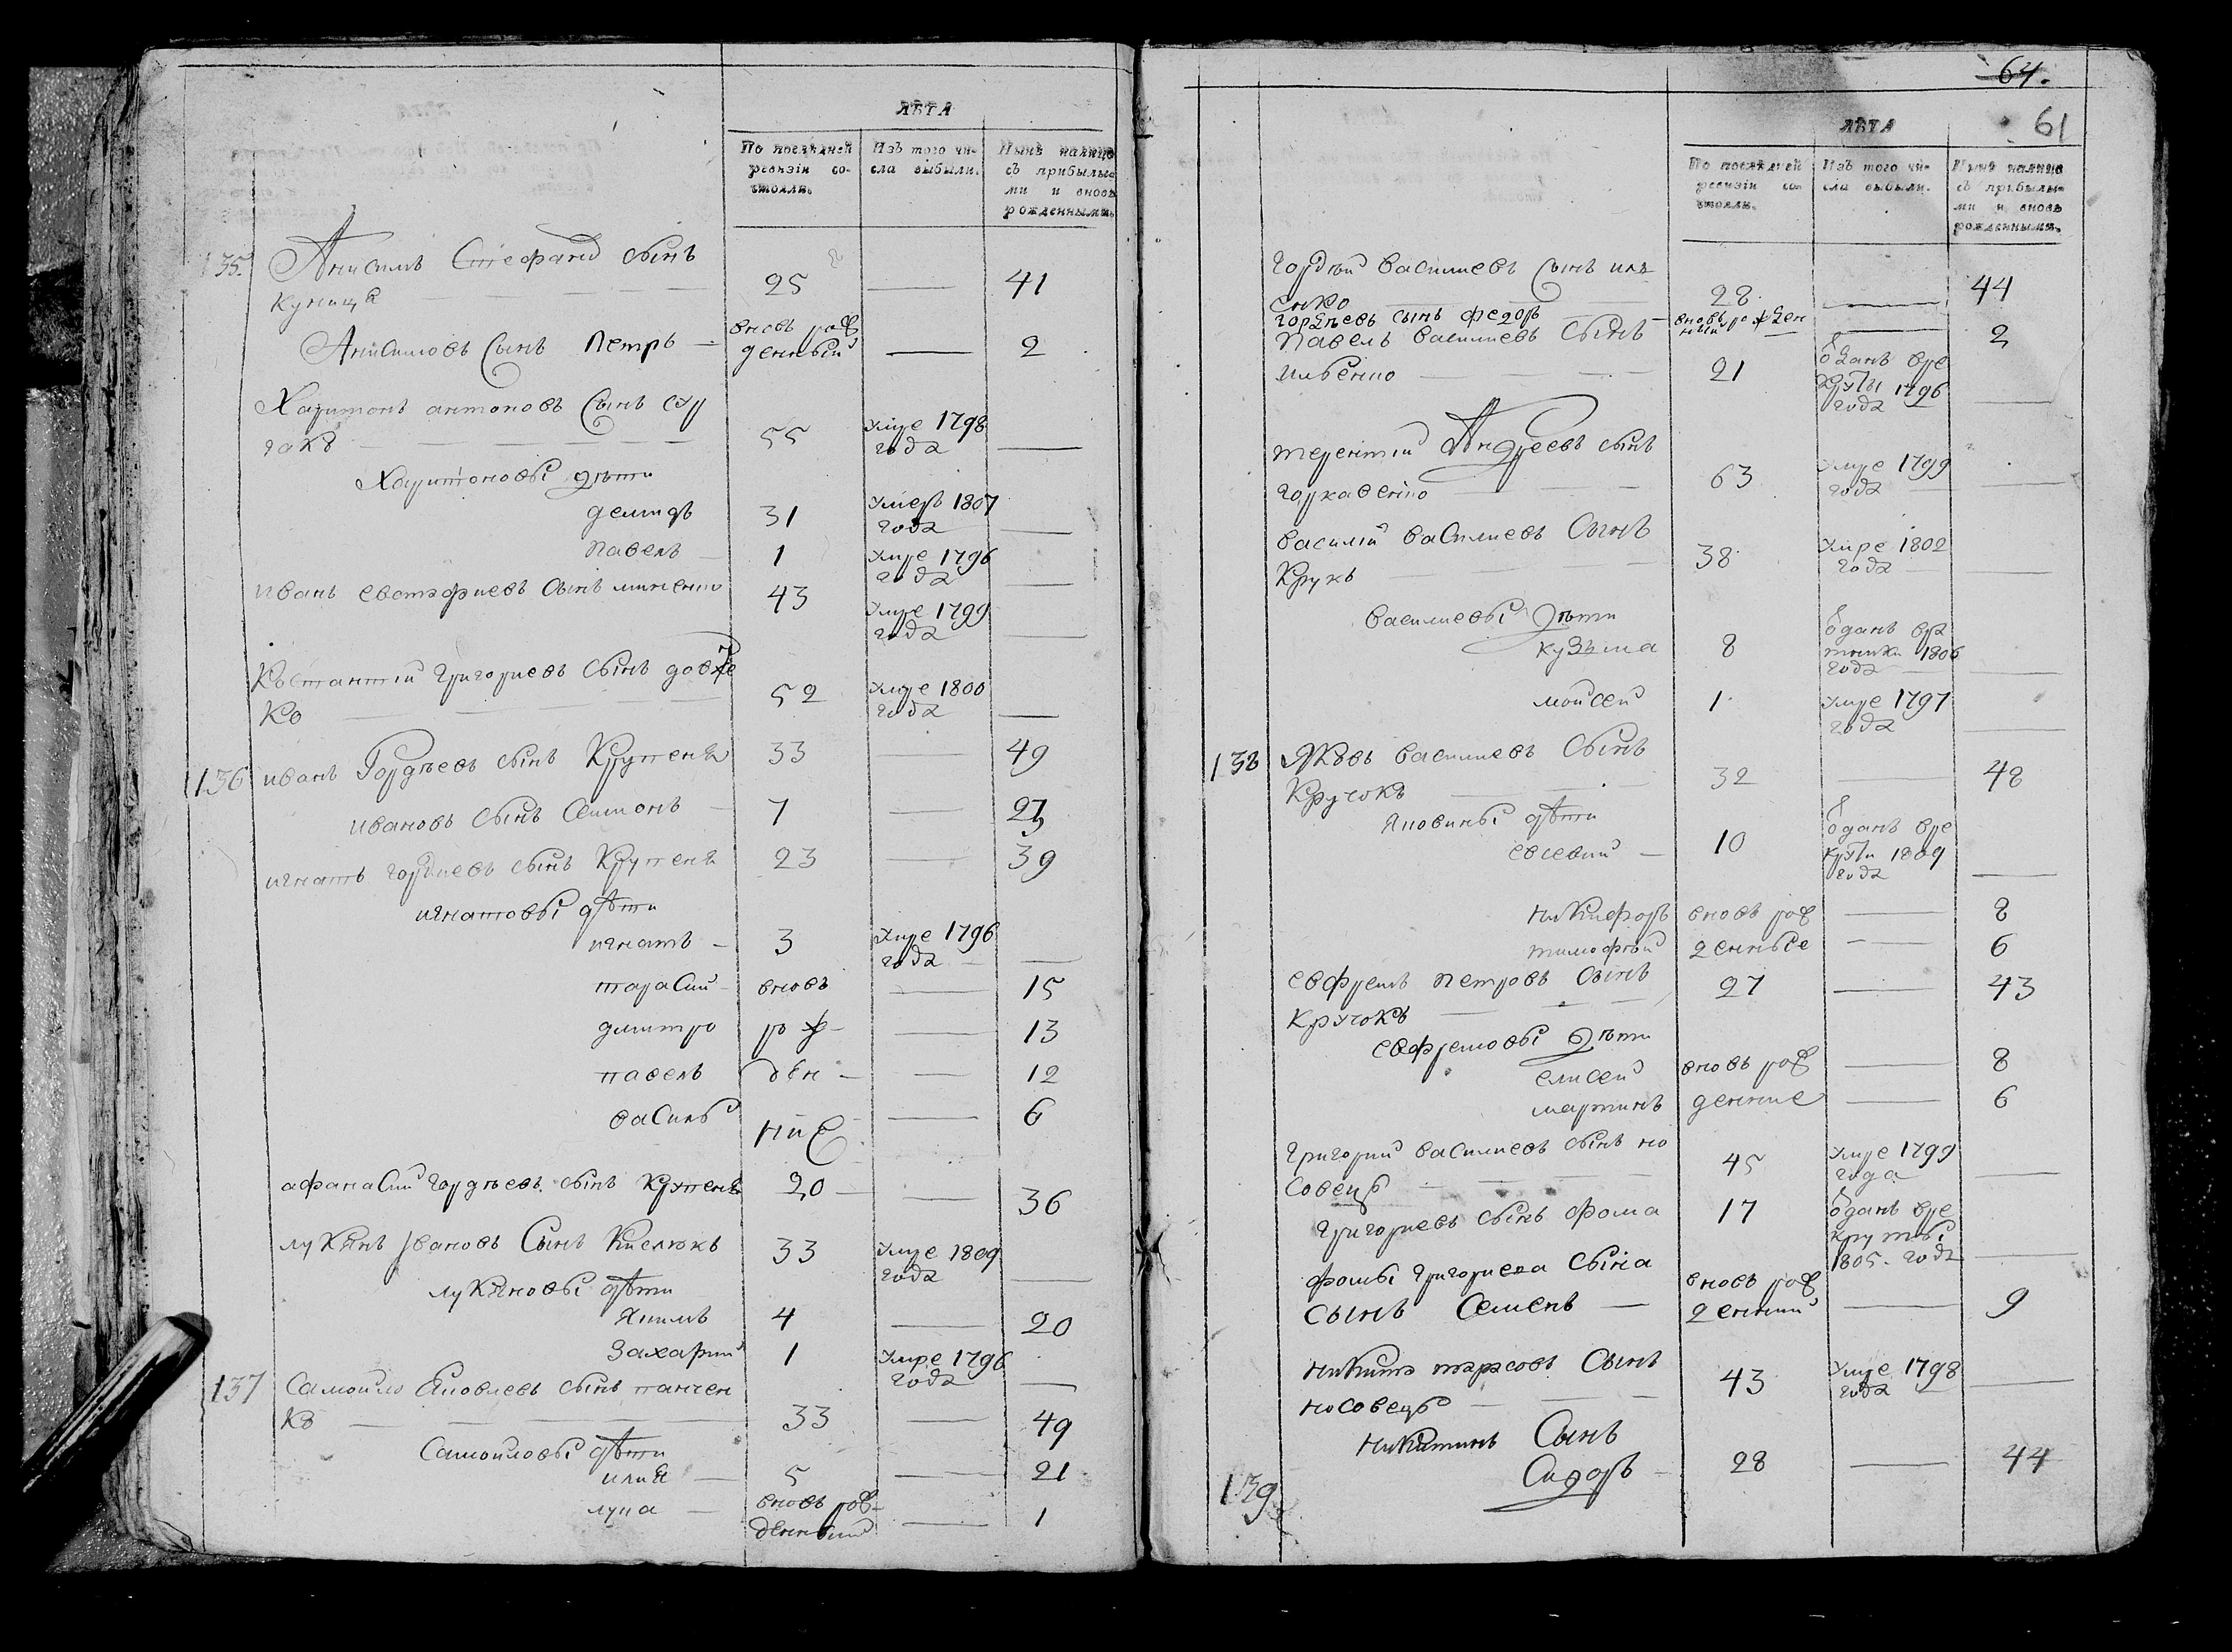 ЛѢТА
По послѣдней ревизіи со-стояли.
Изъ того чи-сла выбыли.
Нынѣ налицо съ прибылы-ми и вновь рожденными.
135. Анисимъ Стефановъ сынъ
куница 25 — 41
Анисимовъ сынъ Петръ — вновь рож
денный — 2
Харитонъ антоновъ сынъ
55 умре 1798
года —
Харитоновы дѣти
демидъ 31 умеръ 1807
года —
павелъ — 1 умре 1796
года —
иванъ евстафиевъ сынъ миненко 43 умре 1799
года —
Костантій григориевъ сынъ довже
ко 52 умре 1800
года —
136 иванъ Гордѣевъ сынъ Крупеня 33 — 49
ивановъ сынъ Семионъ — 7 — 23
игнатъ гордиевъ сынъ Крупеня 23 — 39
игнатовы дѣти
игнатъ — 3 умре 1796
года —
тарасий — вновь — 15
дмитро рож — 13
павелъ ден — 12
василь ние — 6
афанасий гордѣевъ сынъ Крупеня 20 — 36
лукянъ Ивановъ сынъ Киселюкъ 33 умре 1809
года —
лукяновы дѣти
якимъ 4 — 20
захарий 1 умре 1796
года —
137 самойло Яковлевъ сынъ панчен
ко — 33 — 49
Самойловы дѣти
илия — 5 — 21
лука — вновь рож-
денный — 1
64.
61
ЛѢТА
По послѣдней ревизіи со-стояли.
Изъ того чи-сла выбыли.
Нынѣ налицо съ прибылы-ми и вновь рожденными.
гордѣй василиевъ сынъ иль
енко 28 — 44
гордѣевъ сынъ федоръ — вновь рожден
ный — 2
павелъ василиевъ сынъ
ильенко — 21 отданъ вре
круты 1796
года —
терентий Андреевъ сынъ
горкавенко — 63 умре 1799
года —
василий василиевъ сынъ
Крукъ — 38 умре 1802
года —
василиевы дѣти
кузьма 8 отданъ вра
тники 1806
года —
мойсей 1 умре 1797
года —
138 Яковъ василиевъ сынъ
Кручокъ — 32 — 48
яковины дѣти
евсевий — 10 отданъ вре
круты 1809
года —
никифоръ вновь рож — 8
тимофѣй денные — 6
евфремъ петровъ сынъ 27 — 43
кручокъ —
евфремовы дѣти
елисей вновь рож — 8
мартинъ денние — 6
григорий василиевъ сынъ но
совець — 45 умре 1799
года —
григориевъ сынъ фома 17 отданъ вре
круты
1805. года —
фомы григориева сына вновь рож
сынъ Семенъ — денний — 9
никита тарасовъ сынъ
носовець — 43 умре 1798
года —
никитинъ Сынъ
Сидоръ — 28 — 44
139